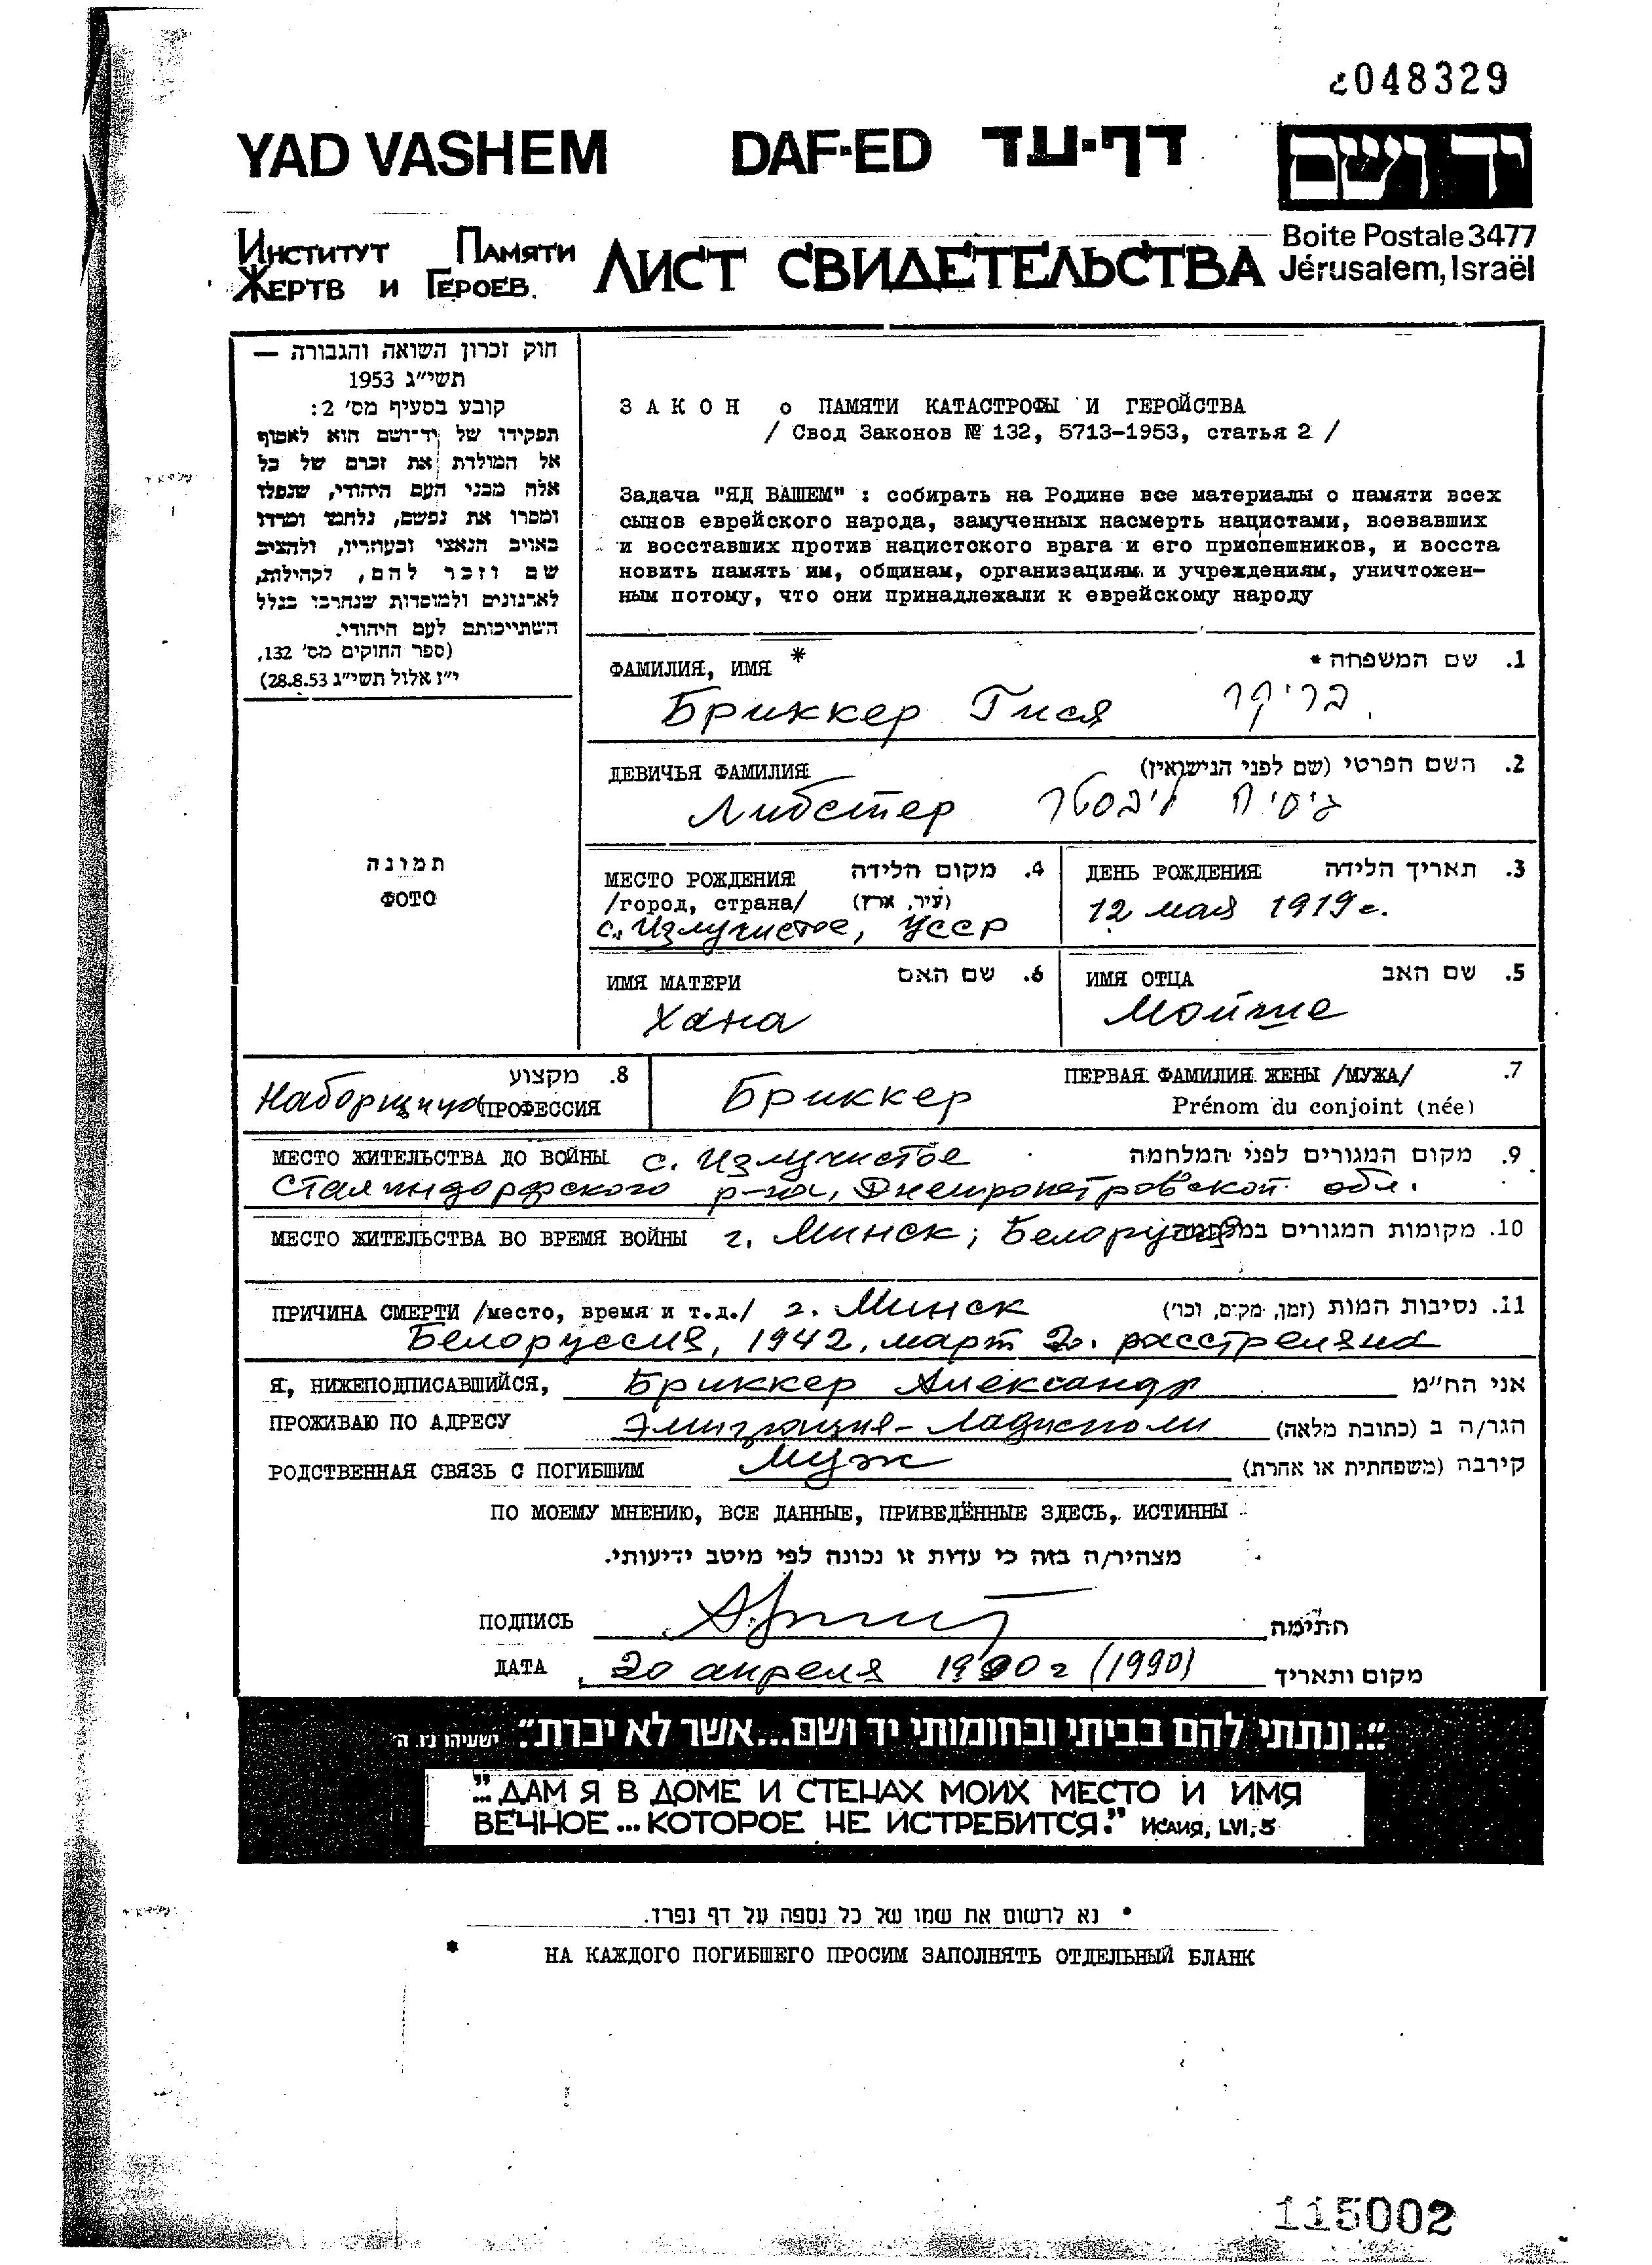 2048329
YAD VASHEM DAF-ED דף-עד יד ושם
Институт Памяти
Жертв и Героев.
ЛИСТ СВИДЕТЕЛЬСТВА
Boite Postale 3477
Jérusalem, Israël
חוק זכרון השואה והגבורה —
תשי״ג 1953
קובע בסעיף מס׳ 2:
תפקידו של יד-ושם הוא לאסוף
אל המולדת את זכרם של כל
אלה מבני העם היהודי, שנפלו
ומסרו את נפשם, נלחמו ומרדו
באויב הנאצי ובעוזריו, ולהציב
שם וזכר להם, לקהילות,
לארגונים ולמוסדות שנחרבו בגלל
השתייכותם לעם היהודי.
(ספר החוקים מס׳ 132,
י״ז אלול תשי״ג 28.8.53)
ЗАКОН о ПАМЯТИ КАТАСТРОФЫ И ГЕРОЙСТВА
/ Свод Законов № 132, 5713-1953, статья 2 /
Задача "ЯД ВАШЕМ" : собирать на Родине все материалы о памяти всех
сынов еврейского народа, замученных насмерть нацистами, воевавших
и восставших против нацистского врага и его приспешников, и восста
новить память им, общинам, организациям и учреждениям, уничтожен-
ным потому, что они принадлежали к еврейскому народу
ФАМИЛИЯ, ИМЯ * 1. שם המשפחה *
Бриккер Гися בריקר
ДЕВИЧЬЯ ФАМИЛИЯ 2. השם הפרטי (שם לפני הנישואין)
Либстер גיסיה ליבסטר
תמונה
ФОТО
МЕСТО РОЖДЕНИЯ 4. מקום הלידה
/город, страна/ (עיר, ארץ)
с. Излучистое, УССР
ДЕНЬ РОЖДЕНИЯ 3. תאריך הלידה
12 мая 1919 г.
ИМЯ МАТЕРИ 6. שם האם
Хана
ИМЯ ОТЦА 5. שם האב
Мойше
8. מקצוע
Наборщица ПРОФЕССИЯ
Бриккер
ПЕРВАЯ ФАМИЛИЯ ЖЕНЫ /МУЖА/ 7.
Prénom du conjoint (née)
МЕСТО ЖИТЕЛЬСТВА ДО ВОЙНЫ с. Излучистое 9. מקום המגורים לפני המלחמה
Сталиндорфского р-на, Днепропетровской обл.
МЕСТО ЖИТЕЛЬСТВА ВО ВРЕМЯ ВОЙНЫ г. Минск; Белоруссия 10. מקומות המגורים במלחמה
ПРИЧИНА СМЕРТИ /место, время и т.д./ г. Минск 11. נסיבות המות (זמן, מקום, וכו׳)
Белоруссия, 1942, март 2. расстреляна
Я, НИЖЕПОДПИСАВШИЙСЯ, Бриккер Александр אני הח״מ
ПРОЖИВАЮ ПО АДРЕСУ Эмиграция - Ладисполи הגר/ה ב (כתובת מלאה)
РОДСТВЕННАЯ СВЯЗЬ С ПОГИБШИМ Муж קירבה (משפחתית או אחרת)
ПО МОЕМУ МНЕНИЮ, ВСЕ ДАННЫЕ, ПРИВЕДЁННЫЕ ЗДЕСЬ, ИСТИННЫ
מצהיר/ה בזה כי עדות זו נכונה לפי מיטב ידיעותי.
ПОДПИСЬ חתימה
ДАТА 20 апреля 1990 г (1990) מקום ותאריך
״...ונתתי להם בביתי ובחומותי יד ושם...אשר לא יכרת״. ישעיהו נו, ה
"...ДАМ Я В ДОМЕ И СТЕНАХ МОИХ МЕСТО И ИМЯ
ВЕЧНОЕ...КОТОРОЕ НЕ ИСТРЕБИТСЯ." ИСАИЯ, LVI, 5
* נא לרשום את שמו של כל נספה על דף נפרד.
* НА КАЖДОГО ПОГИБШЕГО ПРОСИМ ЗАПОЛНЯТЬ ОТДЕЛЬНЫЙ БЛАНК
115002